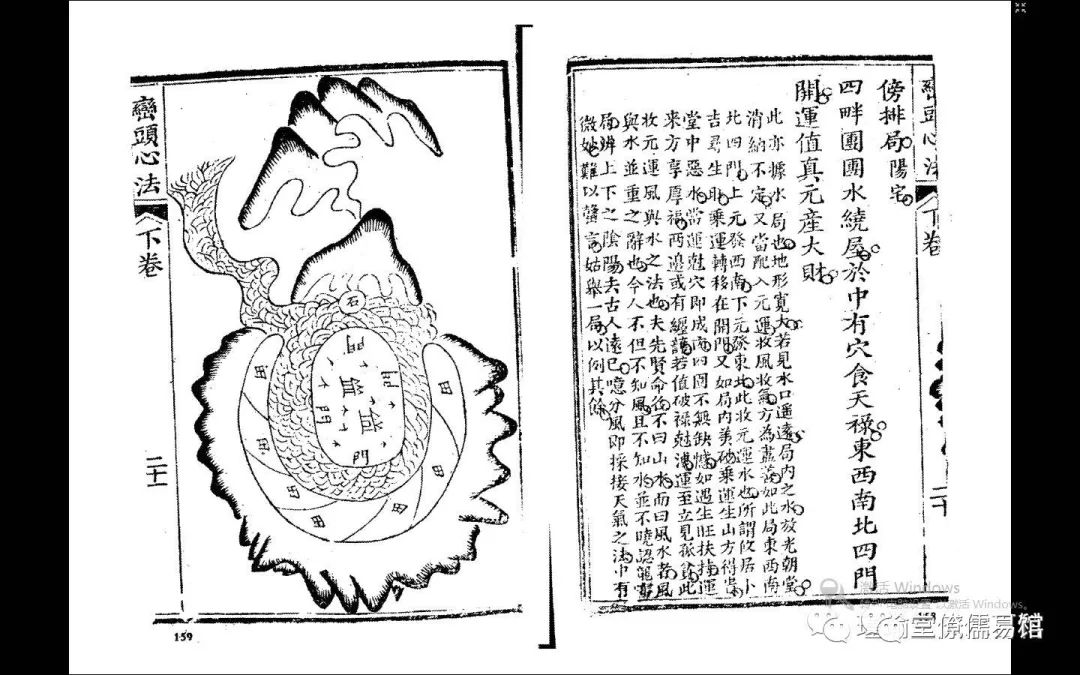 巒頭心法
下卷
傍排局 陽宅
四畔團團水繞屋於中有穴食天祿東西南北四門
開運值真元產大財
此亦據水局也地形寬大若見水口遥遠局内之水放光朝堂
消納不定又當配入元運收風收氣方為盡善如此局東西南
北四門上元發西南下元發東北此收元運水也所謂攸居卜
吉尋生助乘運轉移在開門又如局内美砂乘運生山方得
堂中惡水當運尅穴即成凶四圍不無缺憾如遇生旺扶持運
來方享厚福兩邊或有纏護若值破祿尅運至立見孤貧此
收元運風與水之法也夫先賢命名不曰山水而曰風水者風
與水並重之辭也今人不但不知風且不知水並不曉認龍
局辨上下之陰陽夫古人遠已噫分風即採接天氣之法中有
微妙難以聲言姑舉一局以例其餘
158
巒頭心法
下卷
二十一
石
門
門
門
田
田
田
田
田
田
田
159
激活 Windows
以激活 Windows。
堂僚儒易館